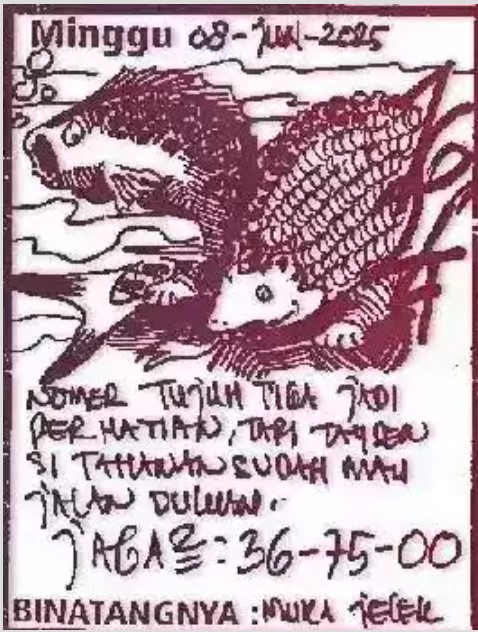 Minggu 08-JUN-2025
NOMER TUJUH TIGA JADI
PERHATIAN, TAPI TAYSEN
SI TAHANAN SUDAH MAU
JALAN DULUAN.
JAGA2: 36-75-00
BINATANGNYA : MUKA JELEK